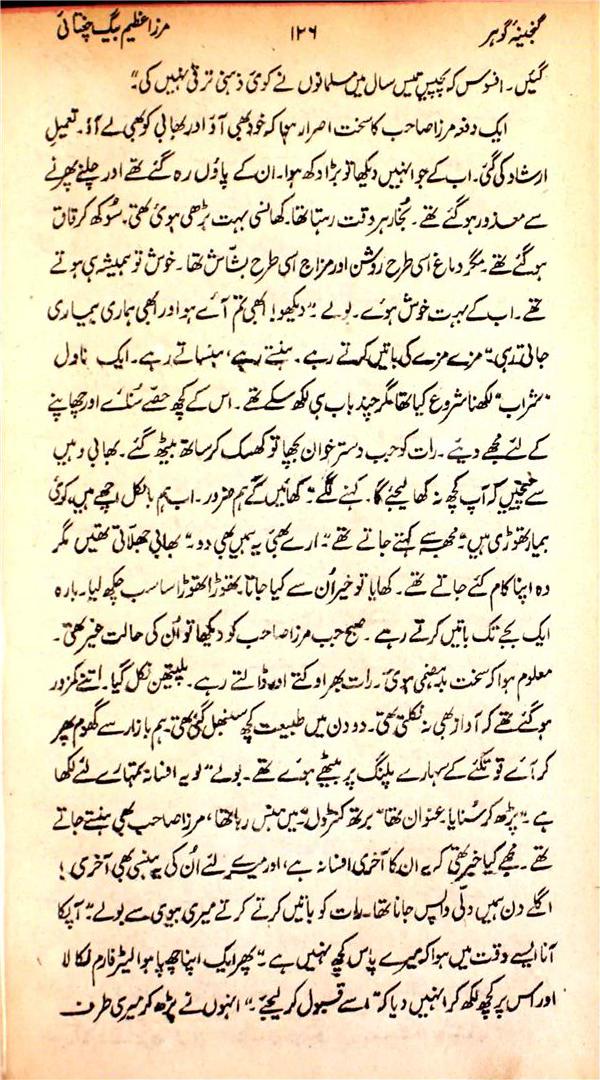 گنجینۂ گوہر ۱۲۶ مرزا عظیم بیگ چغتائی
گئیں۔ افسوس کہ پچیس تیس سال میں مسلمانوں نے کوئی ذہنی ترقی نہیں کی۔"
ایک دفعہ مرزا صاحب کا سخت اصرار ہوا کہ خود بھی آؤ اور بھابی کو بھی لے آؤ۔ تعمیلِ
ارشاد کی گئی۔ اب کے جو انہیں دیکھا تو بڑا دکھ ہوا۔ ان کے پاؤں رہ گئے تھے اور چلنے پھرنے
سے معذور ہو گئے تھے۔ بُخار ہر وقت رہتا تھا۔ کھانسی بہت بڑھی ہوئی تھی۔ سُوکھ کر قاق
ہو گئے تھے۔ مگر دماغ اسی طرح روشن اور مزاج اسی طرح بشّاش تھا۔ خوش تو ہمیشہ ہی ہوتے
تھے۔ اب کے بہت خوش ہوئے۔ بولے "دیکھو! ابھی تم آئے ہو اور ابھی ہماری بیماری
جاتی رہی۔" مزے مزے کی باتیں کرتے رہے۔ ہنستے رہے، ہنساتے رہے۔ ایک ناول
"شراب" لکھنا شروع کیا تھا مگر چند باب ہی لکھ سکے تھے۔ اس کے کچھ حصّے سُنائے اور چھاپنے
کے لئے مجھے دیئے۔ رات کو جب دسترخوان بچھا تو کھسک کر ساتھ بیٹھ گئے۔ بھابی وہیں
سے چیخیں کہ آپ کچھ نہ کھا لیجئے گا۔ کہنے لگے "کھائیں گے ہم ضرور۔ اب ہم بالکل اچھے ہیں، کوئی
بیمار تھوڑی ہیں" مجھ سے کہتے جاتے تھے "ارے بھئی یہ ہمیں بھی دو۔" بھابی جھلّاتی تھیں مگر
وہ اپنا کام کئے جاتے تھے۔ کھایا تو خیر اُن سے کیا جاتا۔ تھوڑا تھوڑا سا سب چکھ لیا۔ بارہ
ایک بجے تک باتیں کرتے رہے۔ صبح جب مرزا صاحب کو دیکھا تو اُن کی حالت غیر تھی۔
معلوم ہوا کہ سخت بدہضمی ہوئی۔ رات بھر اوکتے اور ڈالتے رہے۔ پلیتھن نکل گیا۔ اتنے کمزور
ہو گئے تھے کہ آواز بھی نہ نکلتی تھی۔ دو دن میں طبیعت کچھ سنبھل گئی تھی۔ ہم بازار سے گھوم پھر
کر آئے تو تکئے کے سہارے پلنگ پر بیٹھے ہوئے تھے۔ بولے "لو یہ افسانہ تمہارے لئے لکھا
ہے۔" پڑھ کر سُنایا۔ عنوان تھا "برتھ کنٹرول" میں ہنس رہا تھا، مرزا صاحب بھی ہنستے جاتے
تھے۔ مجھے کیا خبر تھی کہ یہ ان کا آخری افسانہ ہے، اور میرے لئے اُن کی یہ ہنسی بھی آخری!
اگلے دن ہمیں دلّی واپس جانا تھا۔ رات کو باتیں کرتے کرتے میری بیوی سے بولے "آپ کا
آنا ایسے وقت میں ہوا کہ میرے پاس کچھ نہیں ہے۔" پھر ایک اپنا چھپا ہوا لیٹر فارم نکالا
اور اس پر کچھ لکھ کر انہیں دیا کہ "اسے قبول کر لیجئے۔" انہوں نے پڑھ کر میری طرف